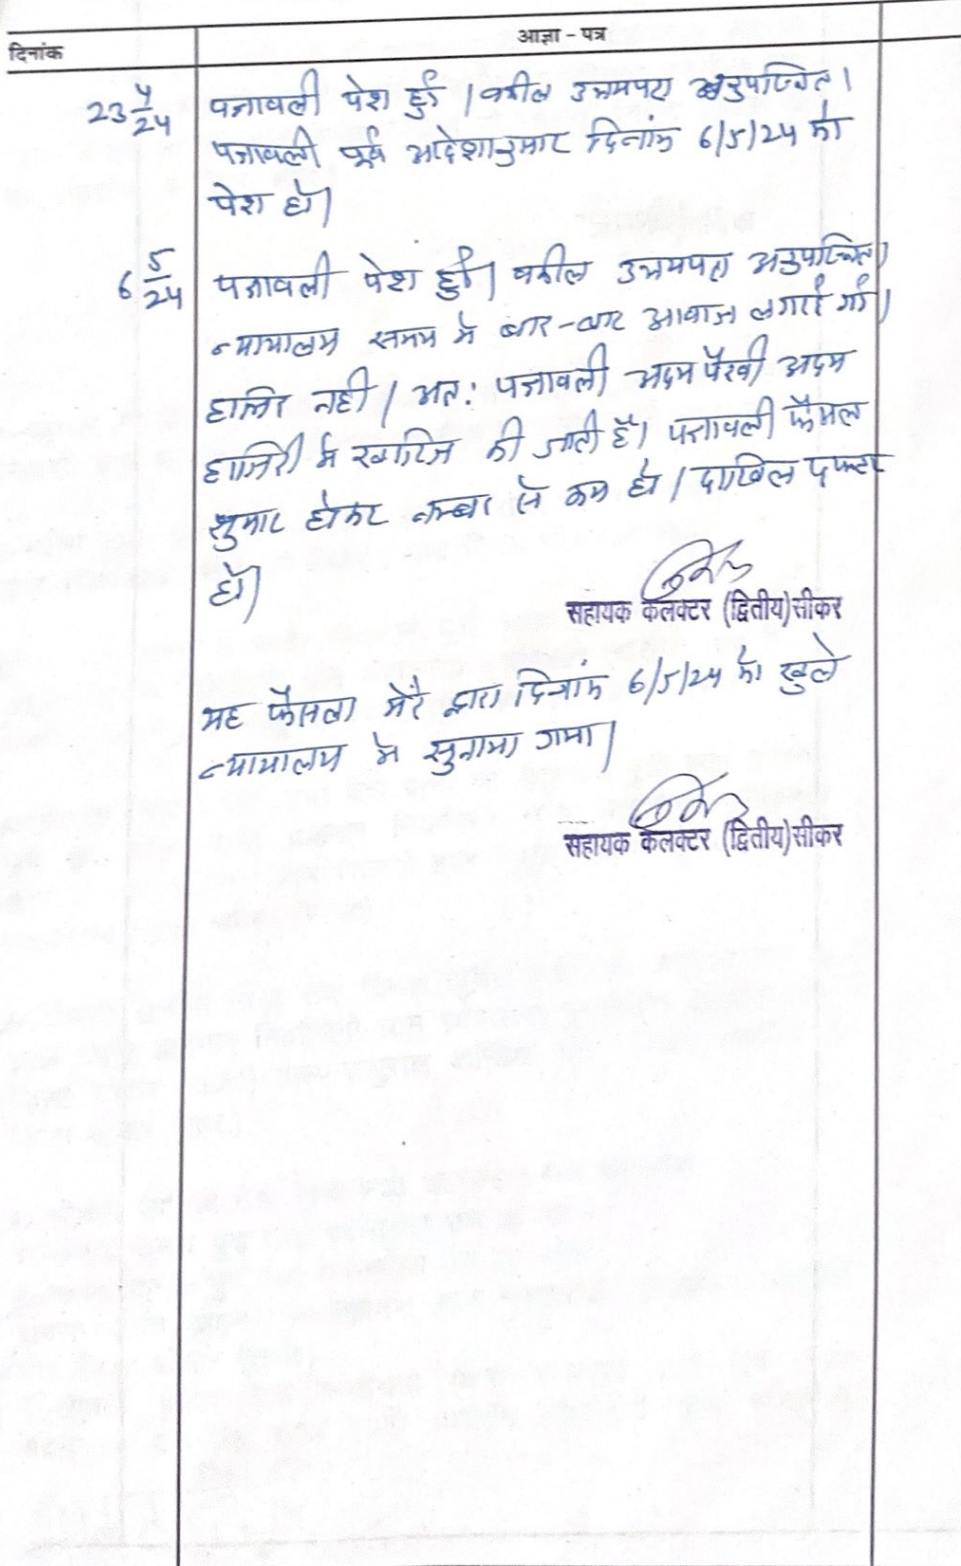 दिनांक
आज्ञा - पत्र
23 4/24 पत्रावली पेश हुई। वकील उभयपक्ष अनुपस्थित।
पत्रावली पूर्व आदेशानुसार दिनांक 6/5/24 को
पेश हो।
6 5/24 पत्रावली पेश हुई। वकील उभयपक्ष अनुपस्थित।
न्यायालय समय मे बार-बार आवाज लगाई गई।
हाजिर नही। अत: पत्रावली अदम पैरवी अदम
हाजिरी मे खारिज की जाती है। पत्रावली फैसल
शुमार होकर नम्बर से कम हो। दाखिल दफ्तर
हो।
सहायक कलक्टर (द्वितीय) सीकर
यह फैसला मेरे द्वारा दिनांक 6/5/24 को खुले
न्यायालय मे सुनाया गया।
सहायक कलक्टर (द्वितीय) सीकर